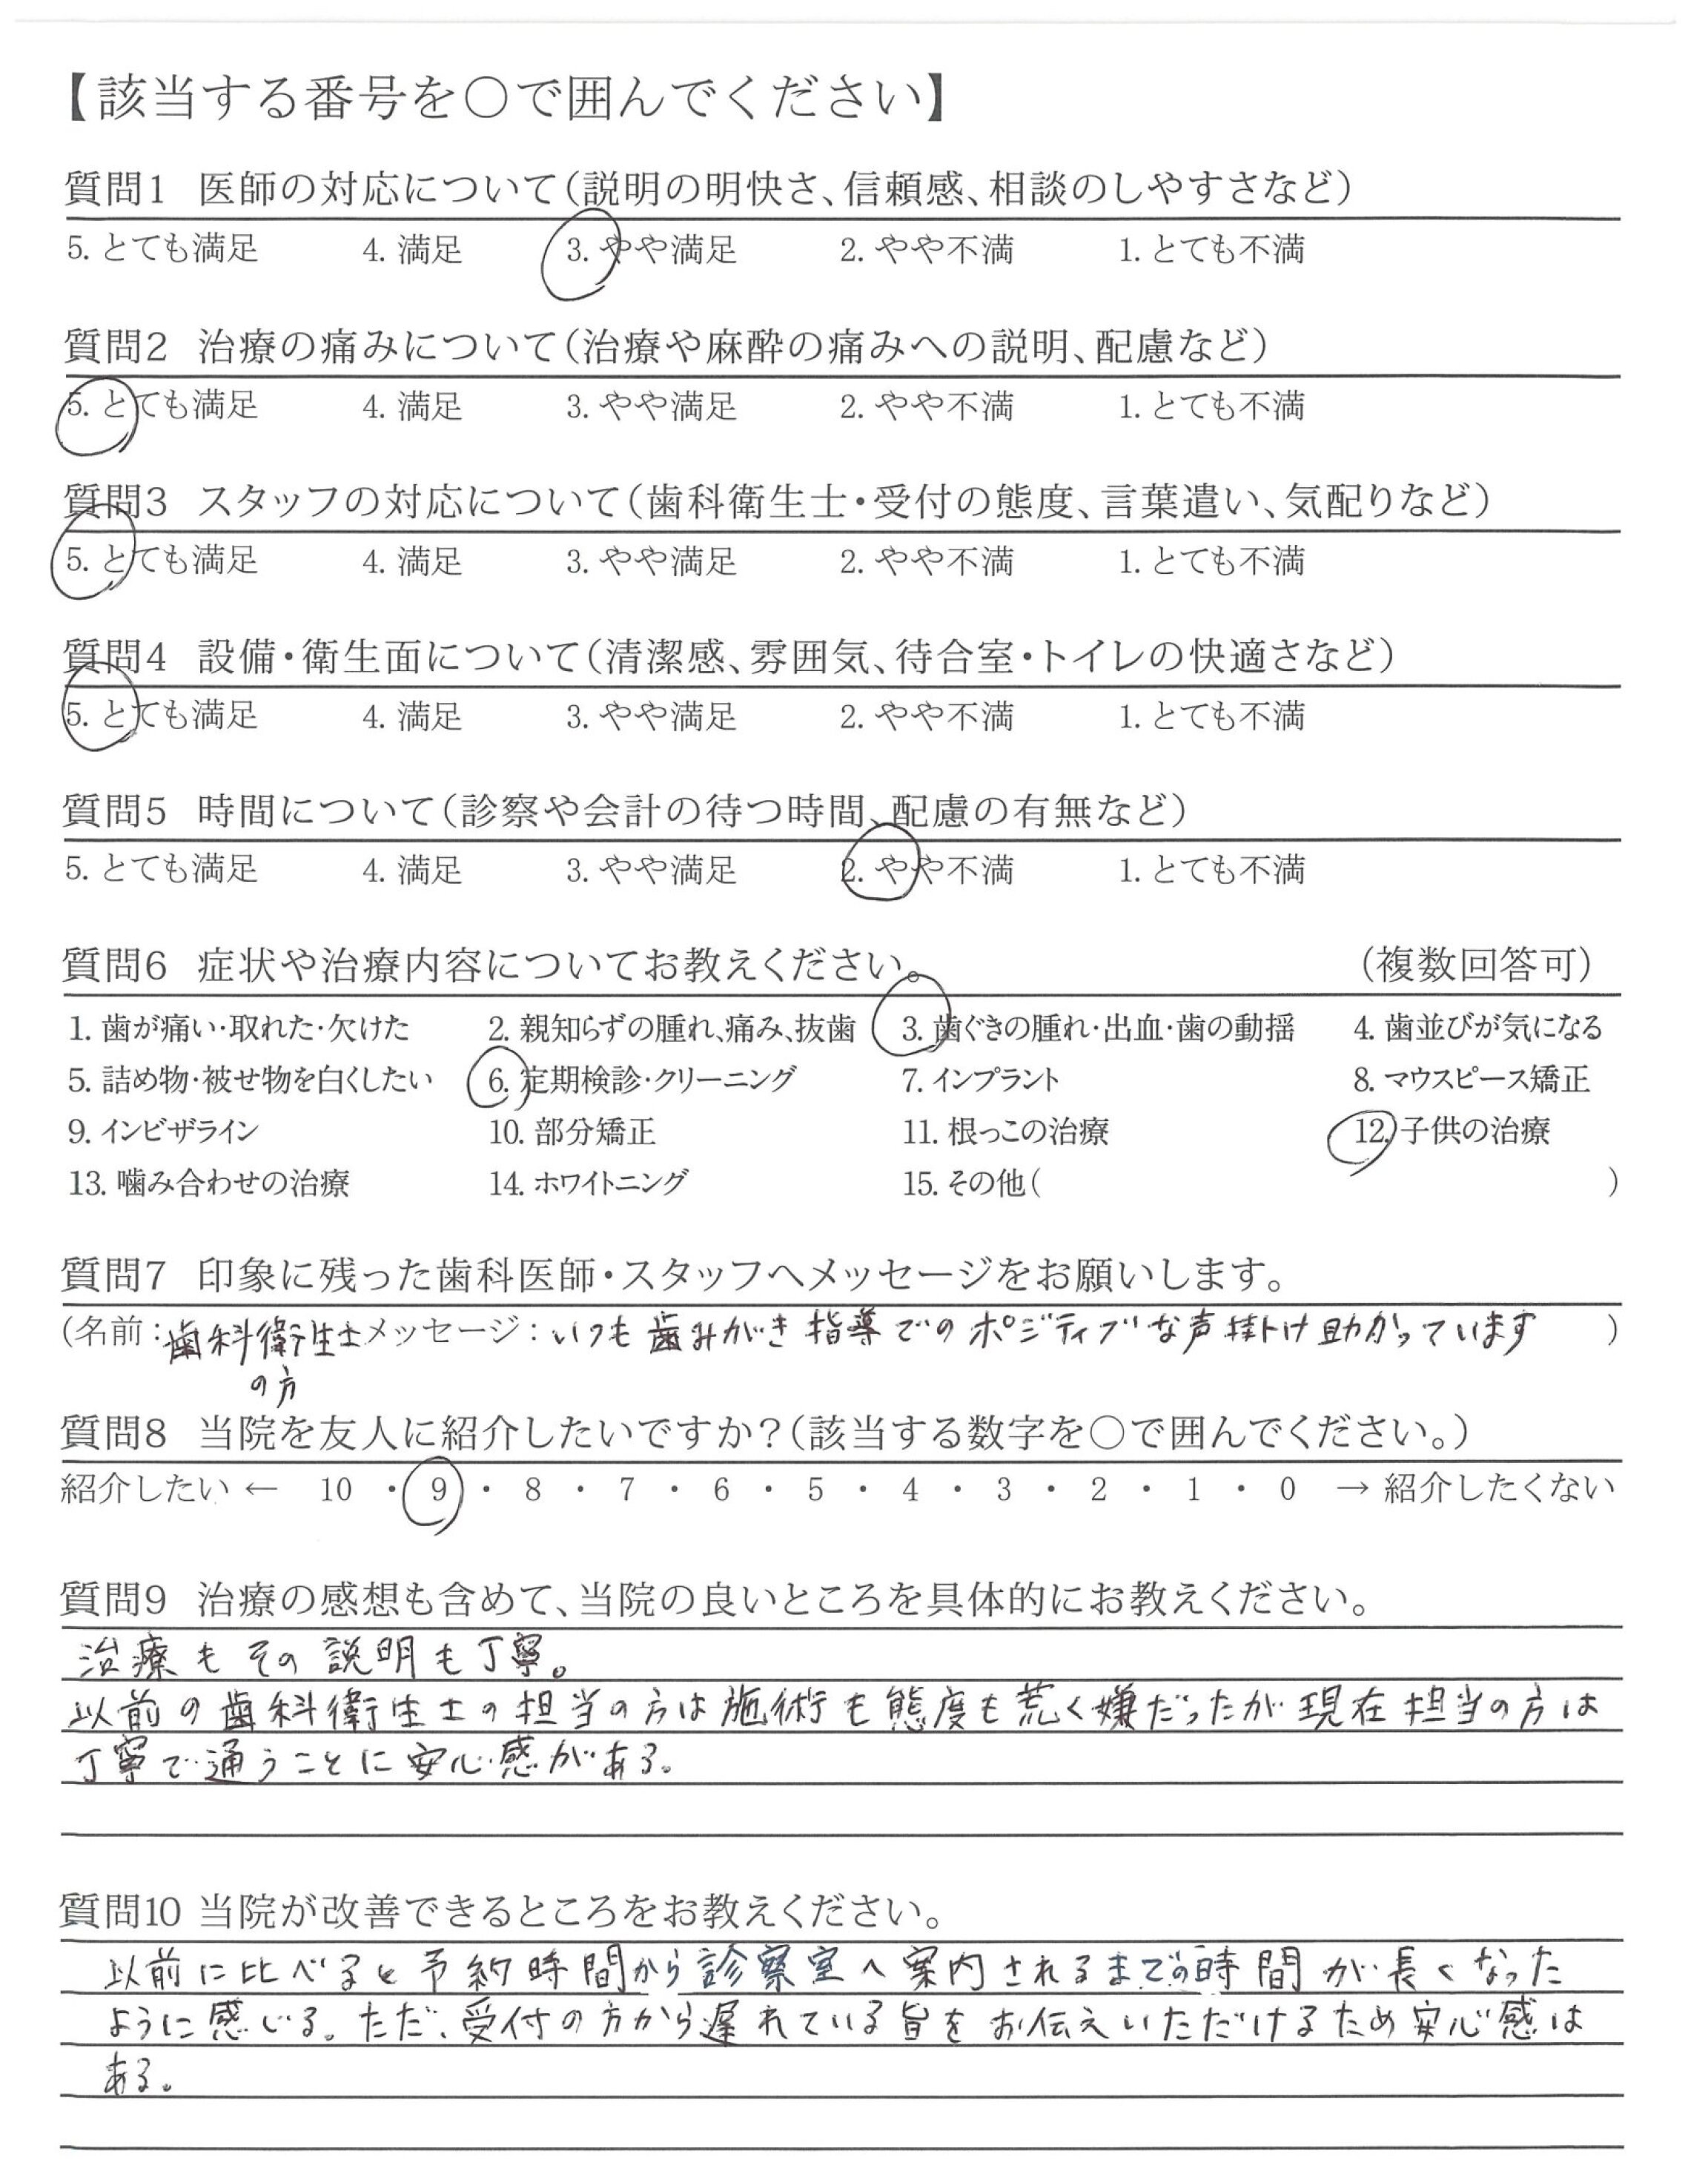 【該当する番号を○で囲んでください】
質問1 医師の対応について（説明の明快さ、信頼感、相談のしやすさなど）
5. とても満足 4. 満足 3. やや満足 2. やや不満 1. とても不満
質問2 治療の痛みについて（治療や麻酔の痛みへの説明、配慮など）
5. とても満足 4. 満足 3. やや満足 2. やや不満 1. とても不満
質問3 スタッフの対応について（歯科衛生士・受付の態度、言葉遣い、気配りなど）
5. とても満足 4. 満足 3. やや満足 2. やや不満 1. とても不満
質問4 設備・衛生面について（清潔感、雰囲気、待合室・トイレの快適さなど）
5. とても満足 4. 満足 3. やや満足 2. やや不満 1. とても不満
質問5 時間について（診察や会計の待つ時間、配慮の有無など）
5. とても満足 4. 満足 3. やや満足 2. やや不満 1. とても不満
質問6 症状や治療内容についてお教えください。 （複数回答可）
1. 歯が痛い・取れた・欠けた 2. 親知らずの腫れ、痛み、抜歯 3. 歯ぐきの腫れ・出血・歯の動揺 4. 歯並びが気になる
5. 詰め物・被せ物を白くしたい 6. 定期検診・クリーニング 7. インプラント 8. マウスピース矯正
9. インビザライン 10. 部分矯正 11. 根っこの治療 12. 子供の治療
13. 噛み合わせの治療 14. ホワイトニング 15. その他（ ）
質問7 印象に残った歯科医師・スタッフへメッセージをお願いします。
（名前：歯科衛生士 メッセージ：いつも歯みがき指導でのポジティブな声掛け助かっています ）
の方
質問8 当院を友人に紹介したいですか？（該当する数字を○で囲んでください。）
紹介したい ← 10 ・ 9 ・ 8 ・ 7 ・ 6 ・ 5 ・ 4 ・ 3 ・ 2 ・ 1 ・ 0 → 紹介したくない
質問9 治療の感想も含めて、当院の良いところを具体的にお教えください。
治療もその説明も丁寧。
以前の歯科衛生士の担当の方は施術も態度も荒く嫌だったが現在担当の方は
丁寧で通うことに安心感がある。
質問10 当院が改善できるところをお教えください。
以前に比べると予約時間から診察室へ案内されるまでの時間が長くなった
ように感じる。ただ、受付の方から遅れている旨をお伝えいただけるため安心感は
ある。